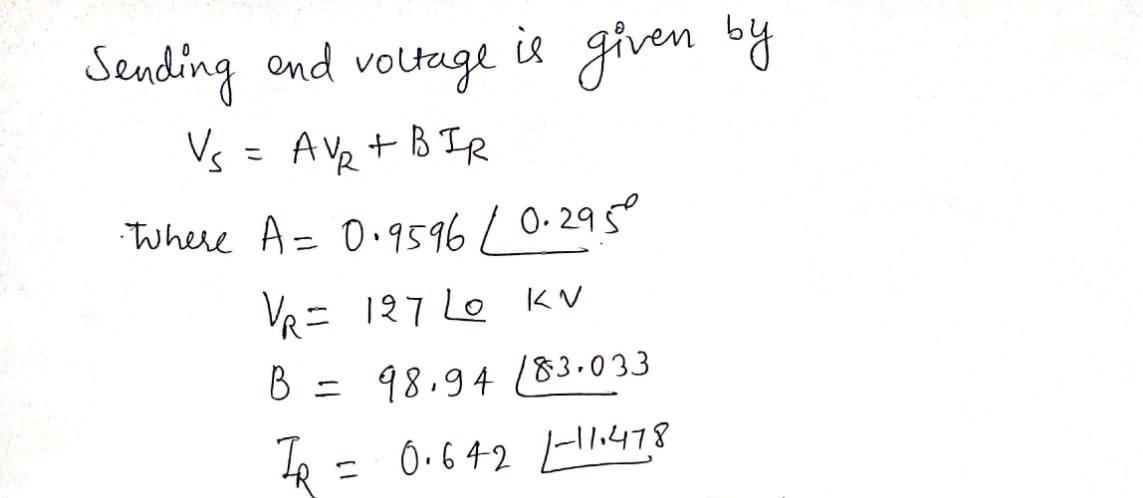 Sending end voltage is given by
Vs = AVR + BIR
where A = 0.9596 ∠0.295°
VR = 127 ∠0 KV
B = 98.94 ∠83.033
IR = 0.642 ∠-11.478